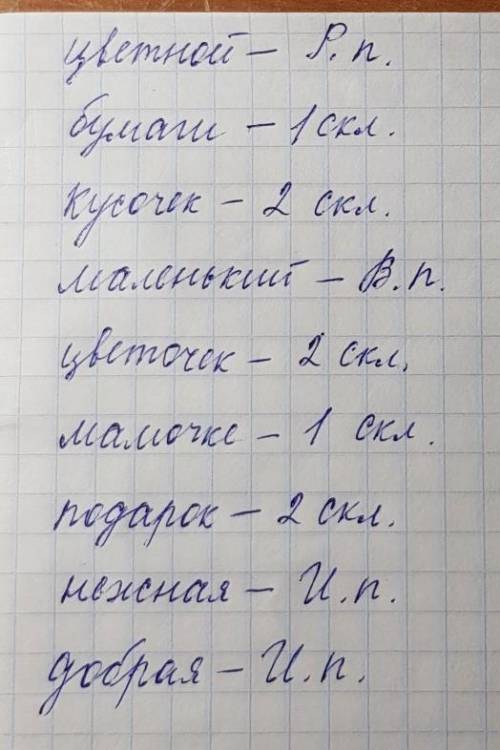 цветной – Р. п.
бумаги – 1 скл.
кусочек – 2 скл.
маленький – В. п.
цветочек – 2 скл.
мамочке – 1 скл.
подарок – 2 скл.
нежная – И. п.
добрая – И. п.